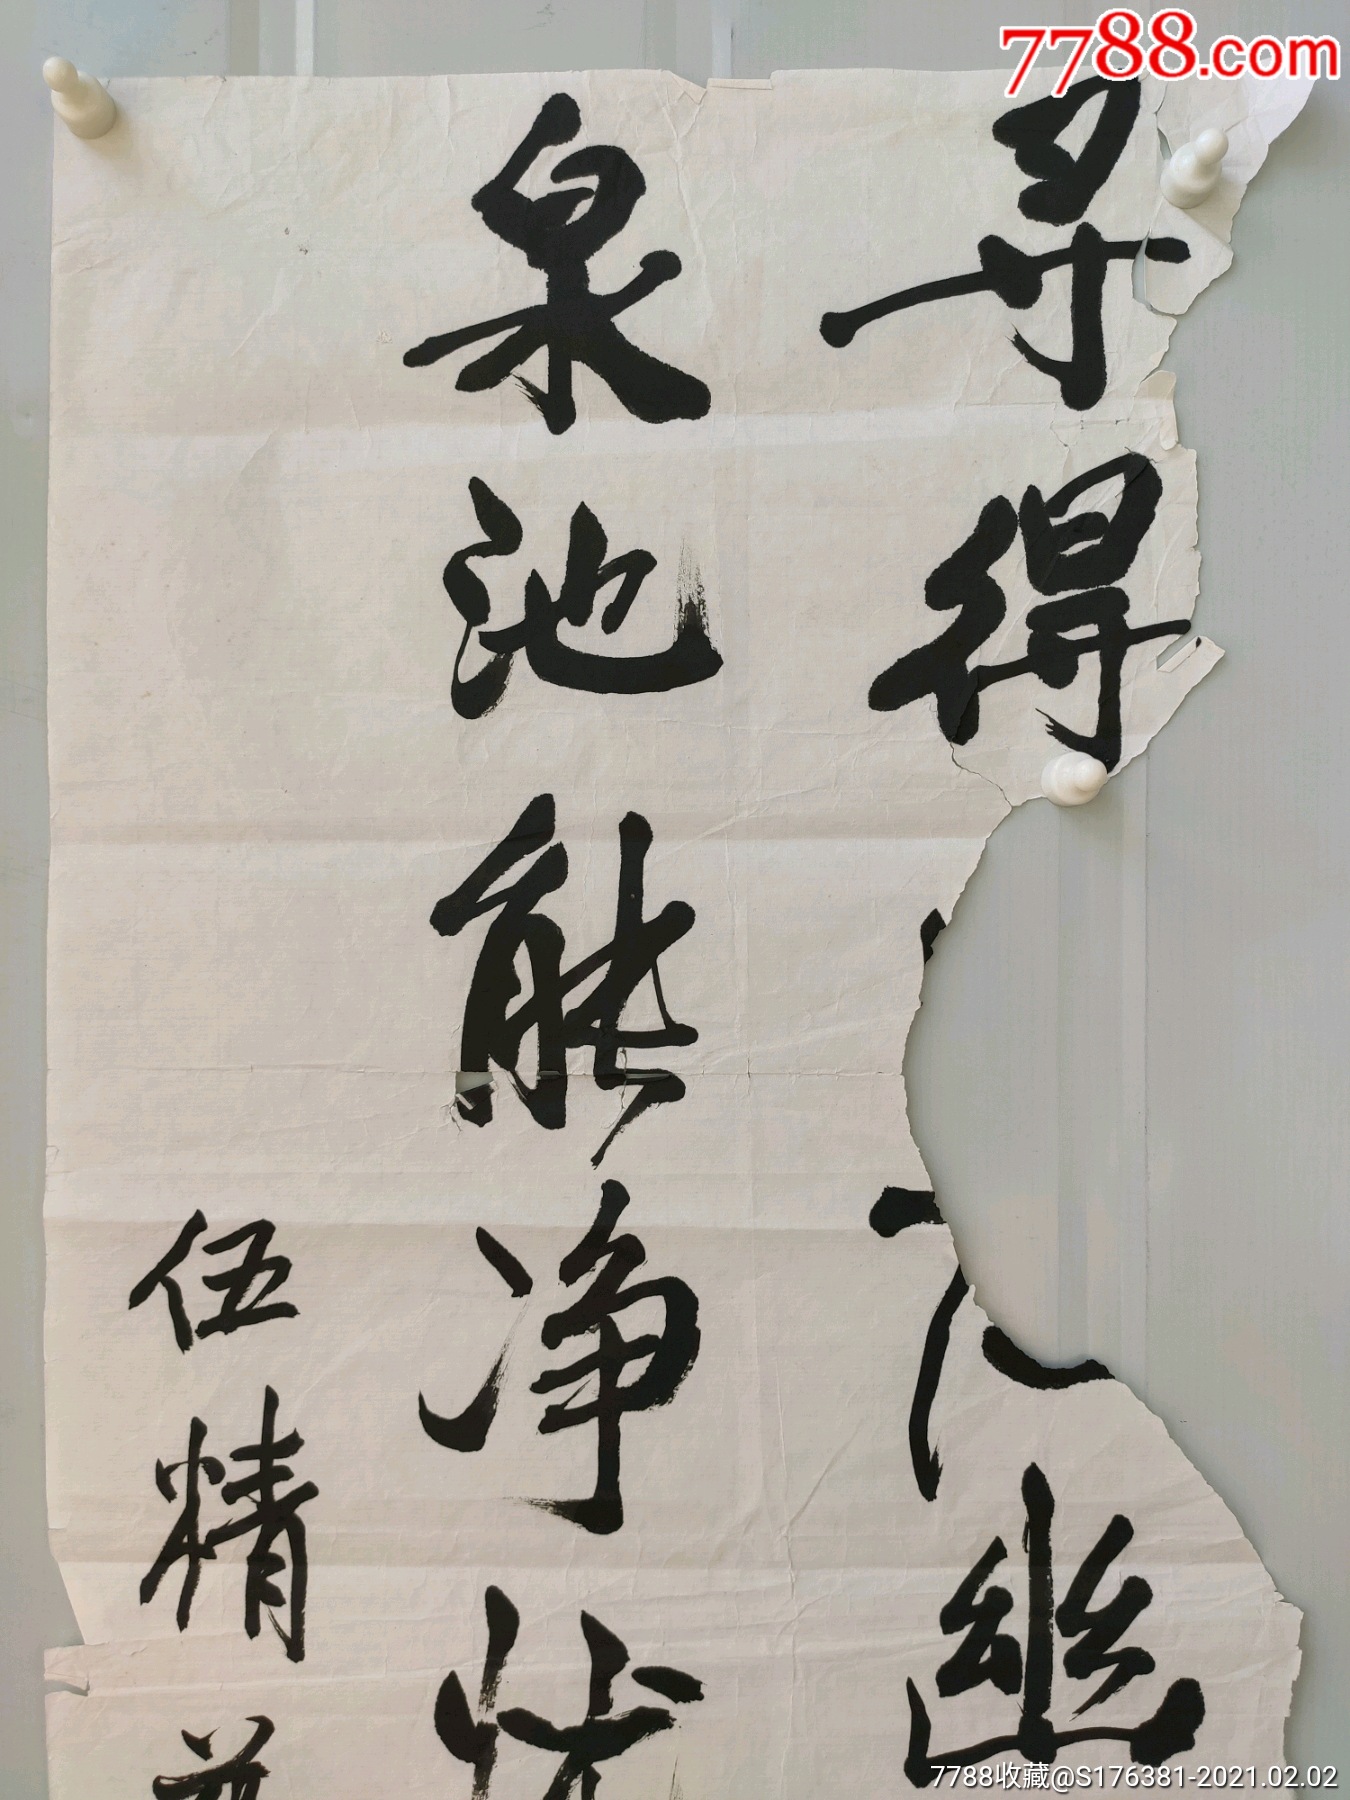 7788.com
寻得幽
泉池能净
伍精
7788收藏@S176381-2021.02.02